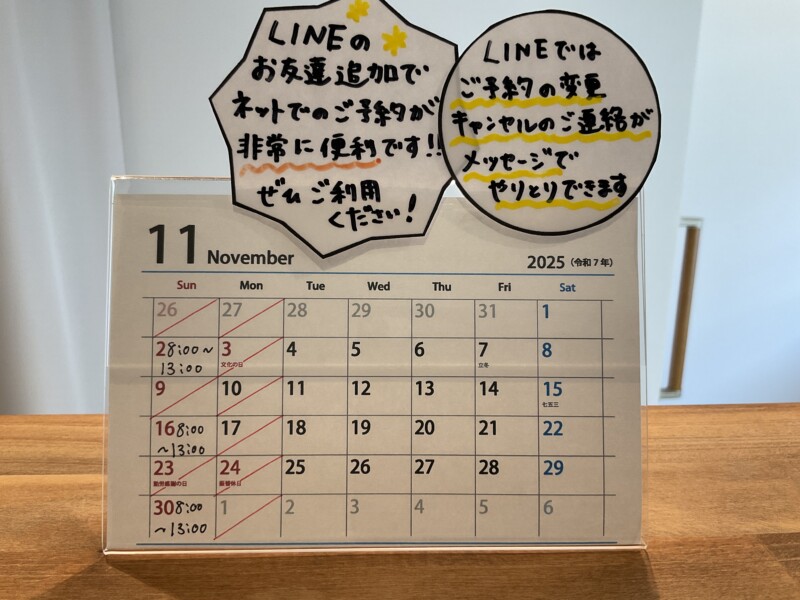 LINEの
お友達追加で
ネットでのご予約が
非常に便利です!!
ぜひご利用
ください!
LINEでは
ご予約の変更
キャンセルのご連絡が
メッセージで
やりとりできます
11 November 2025 (令和7年)
Sun Mon Tue Wed Thu Fri Sat
26 27 28 29 30 31 1
2 8:00~ 3 4 5 6 7 8
13:00 文化の日 立冬
9 10 11 12 13 14 15
七五三
16 8:00 17 18 19 20 21 22
~13:00
23 24 25 26 27 28 29
勤労感謝の日 振替休日
30 8:00 1 2 3 4 5 6
~13:00